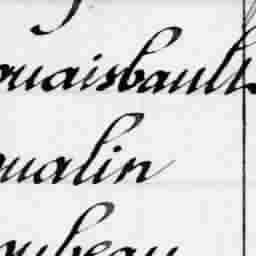 ouaisbault
oualin
oubeau